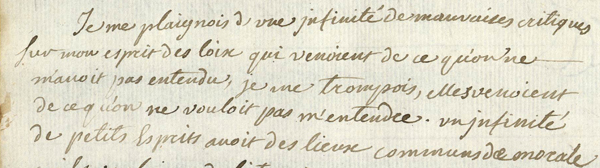 Je me plaignois d'une infinité de mauvaises critiques
sur mon esprit des loix qui venoient de ce qu'on ne
m'avoit pas entendu, je me trompois, elles venoient
de ce qu'on ne vouloit pas m'entendre. un infinité
de petits Esprits avoit des lieux communs de morale